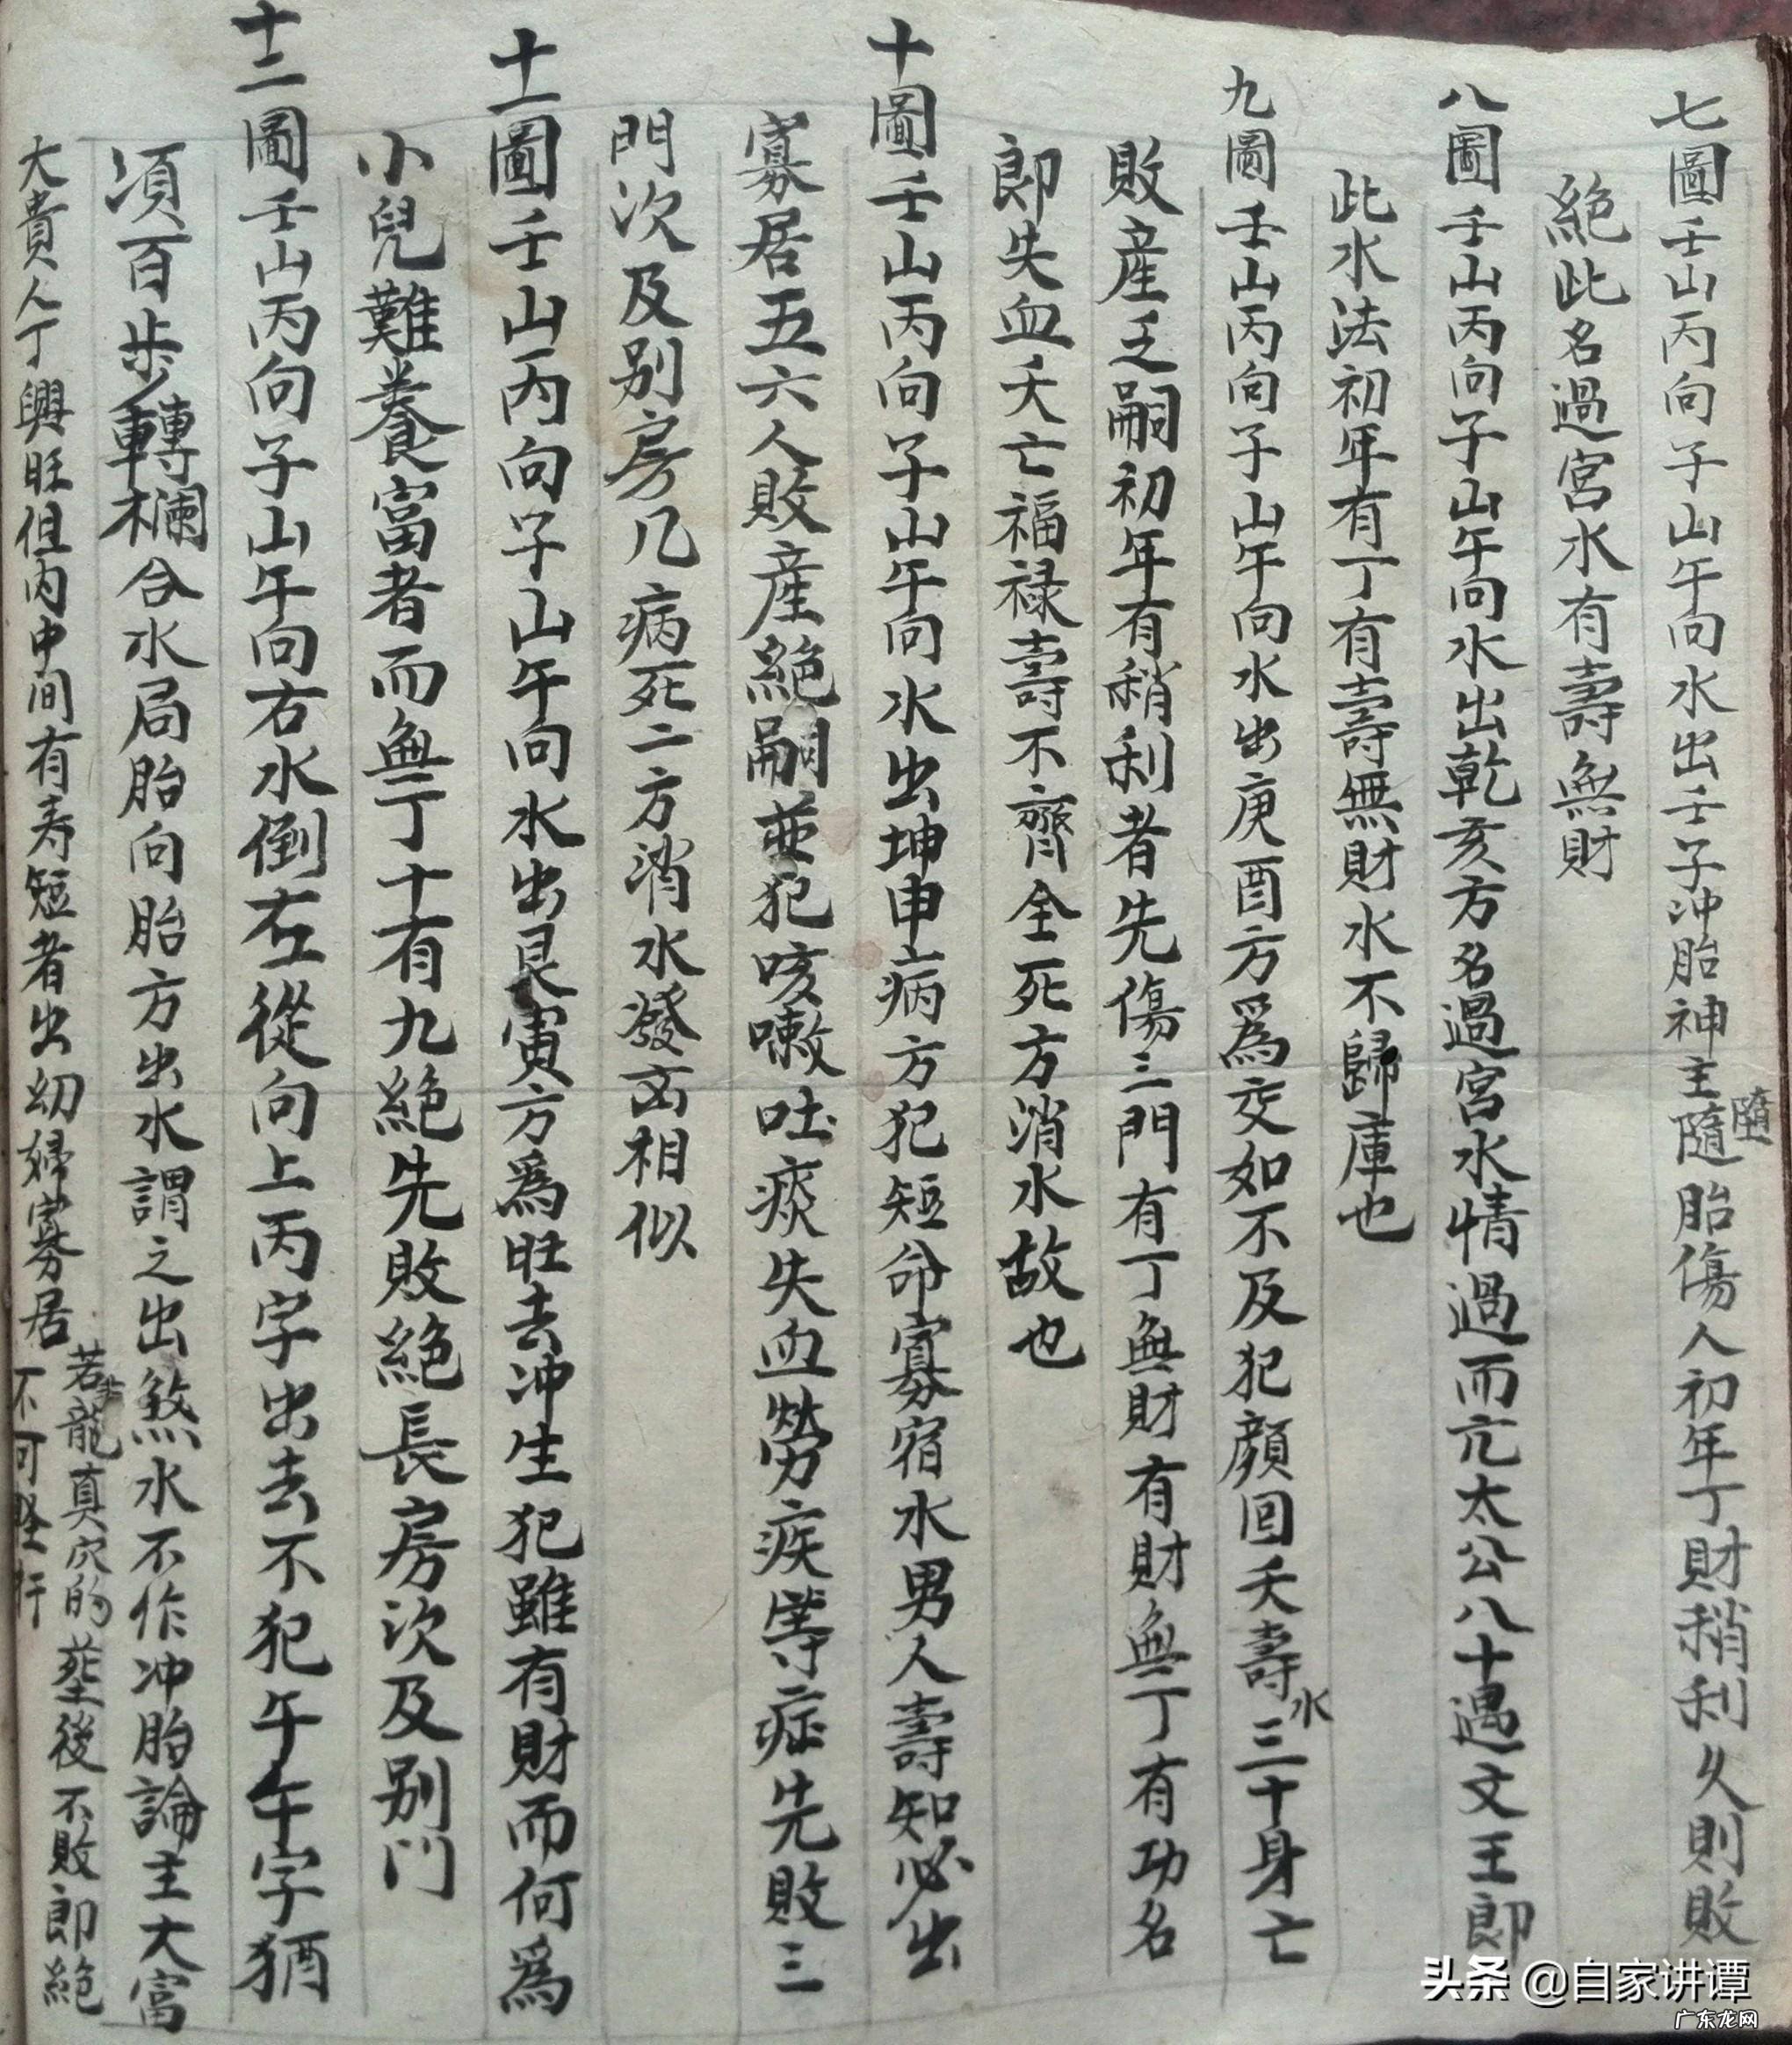 七圖壬山丙向子山午向水出壬子冲胎神主隨胎傷人初年丁財稍利久則敗
隨
絕此名過宮水有壽無財
八圖壬山丙向子山午向水出乾亥方名過宮水情過而亢太公八十遇文王即
此水法初年有丁有壽無財水不歸庫也
九圖壬山丙向子山午向水出庚酉方爲交如不及犯顏回夭壽水三十身亡
敗産乏嗣初年有稍利者先傷三門有丁無財有財無丁有功名
即失血夭亡福禄壽不齊全死方消水故也
十圖壬山丙向子山午向水出坤申病方犯短命寡宿水男人壽知必出
寡居五六人敗産絕嗣並犯咳嗽吐痰失血勞疾等症先敗三
門次及别房几病死二方消水發凶相似
十一圖壬山丙向子山午向水出艮寅方爲旺去冲生犯雖有財而何爲
小兒難養富者而無丁十有九絕先敗絕長房次及别門
十二圖壬山丙向子山午向右水倒左從向上丙字出去不犯午午字猶
須百步轉欄合水局胎向胎方出水謂之出煞水不作冲胎論主大富
大貴人丁興旺但内中间有寿短者出幼婦寡居
若非龍真穴的塟後不敗即絕
不可輕扦
头条 @自家讲谭
广东龙网